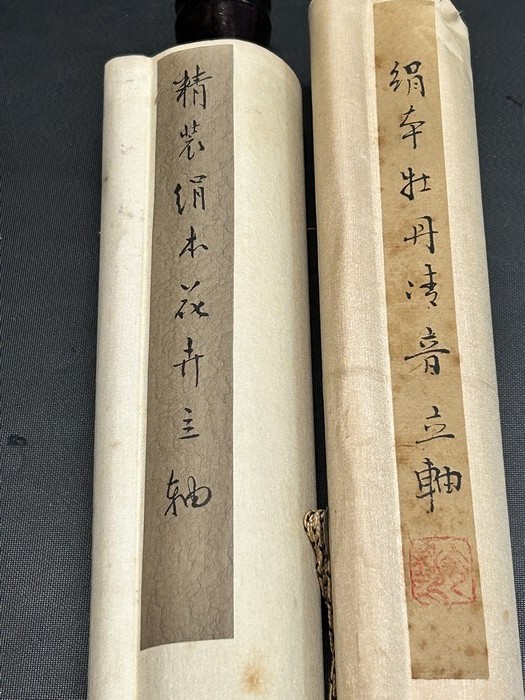 絹本牡丹清音立軸
精装絹本花卉立轴